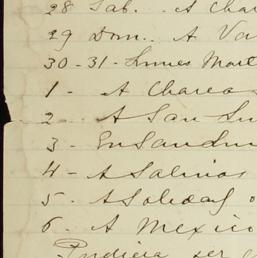 28 Sab. . A Char
29 Dom.. A Va
30 - 31 - Lunes Mart
1 - A Charcas
2 - A San Lu
3 - En San Lui
4 - A Salinas
5 - A Soledad
6 - A Mexico
Pudiera ser